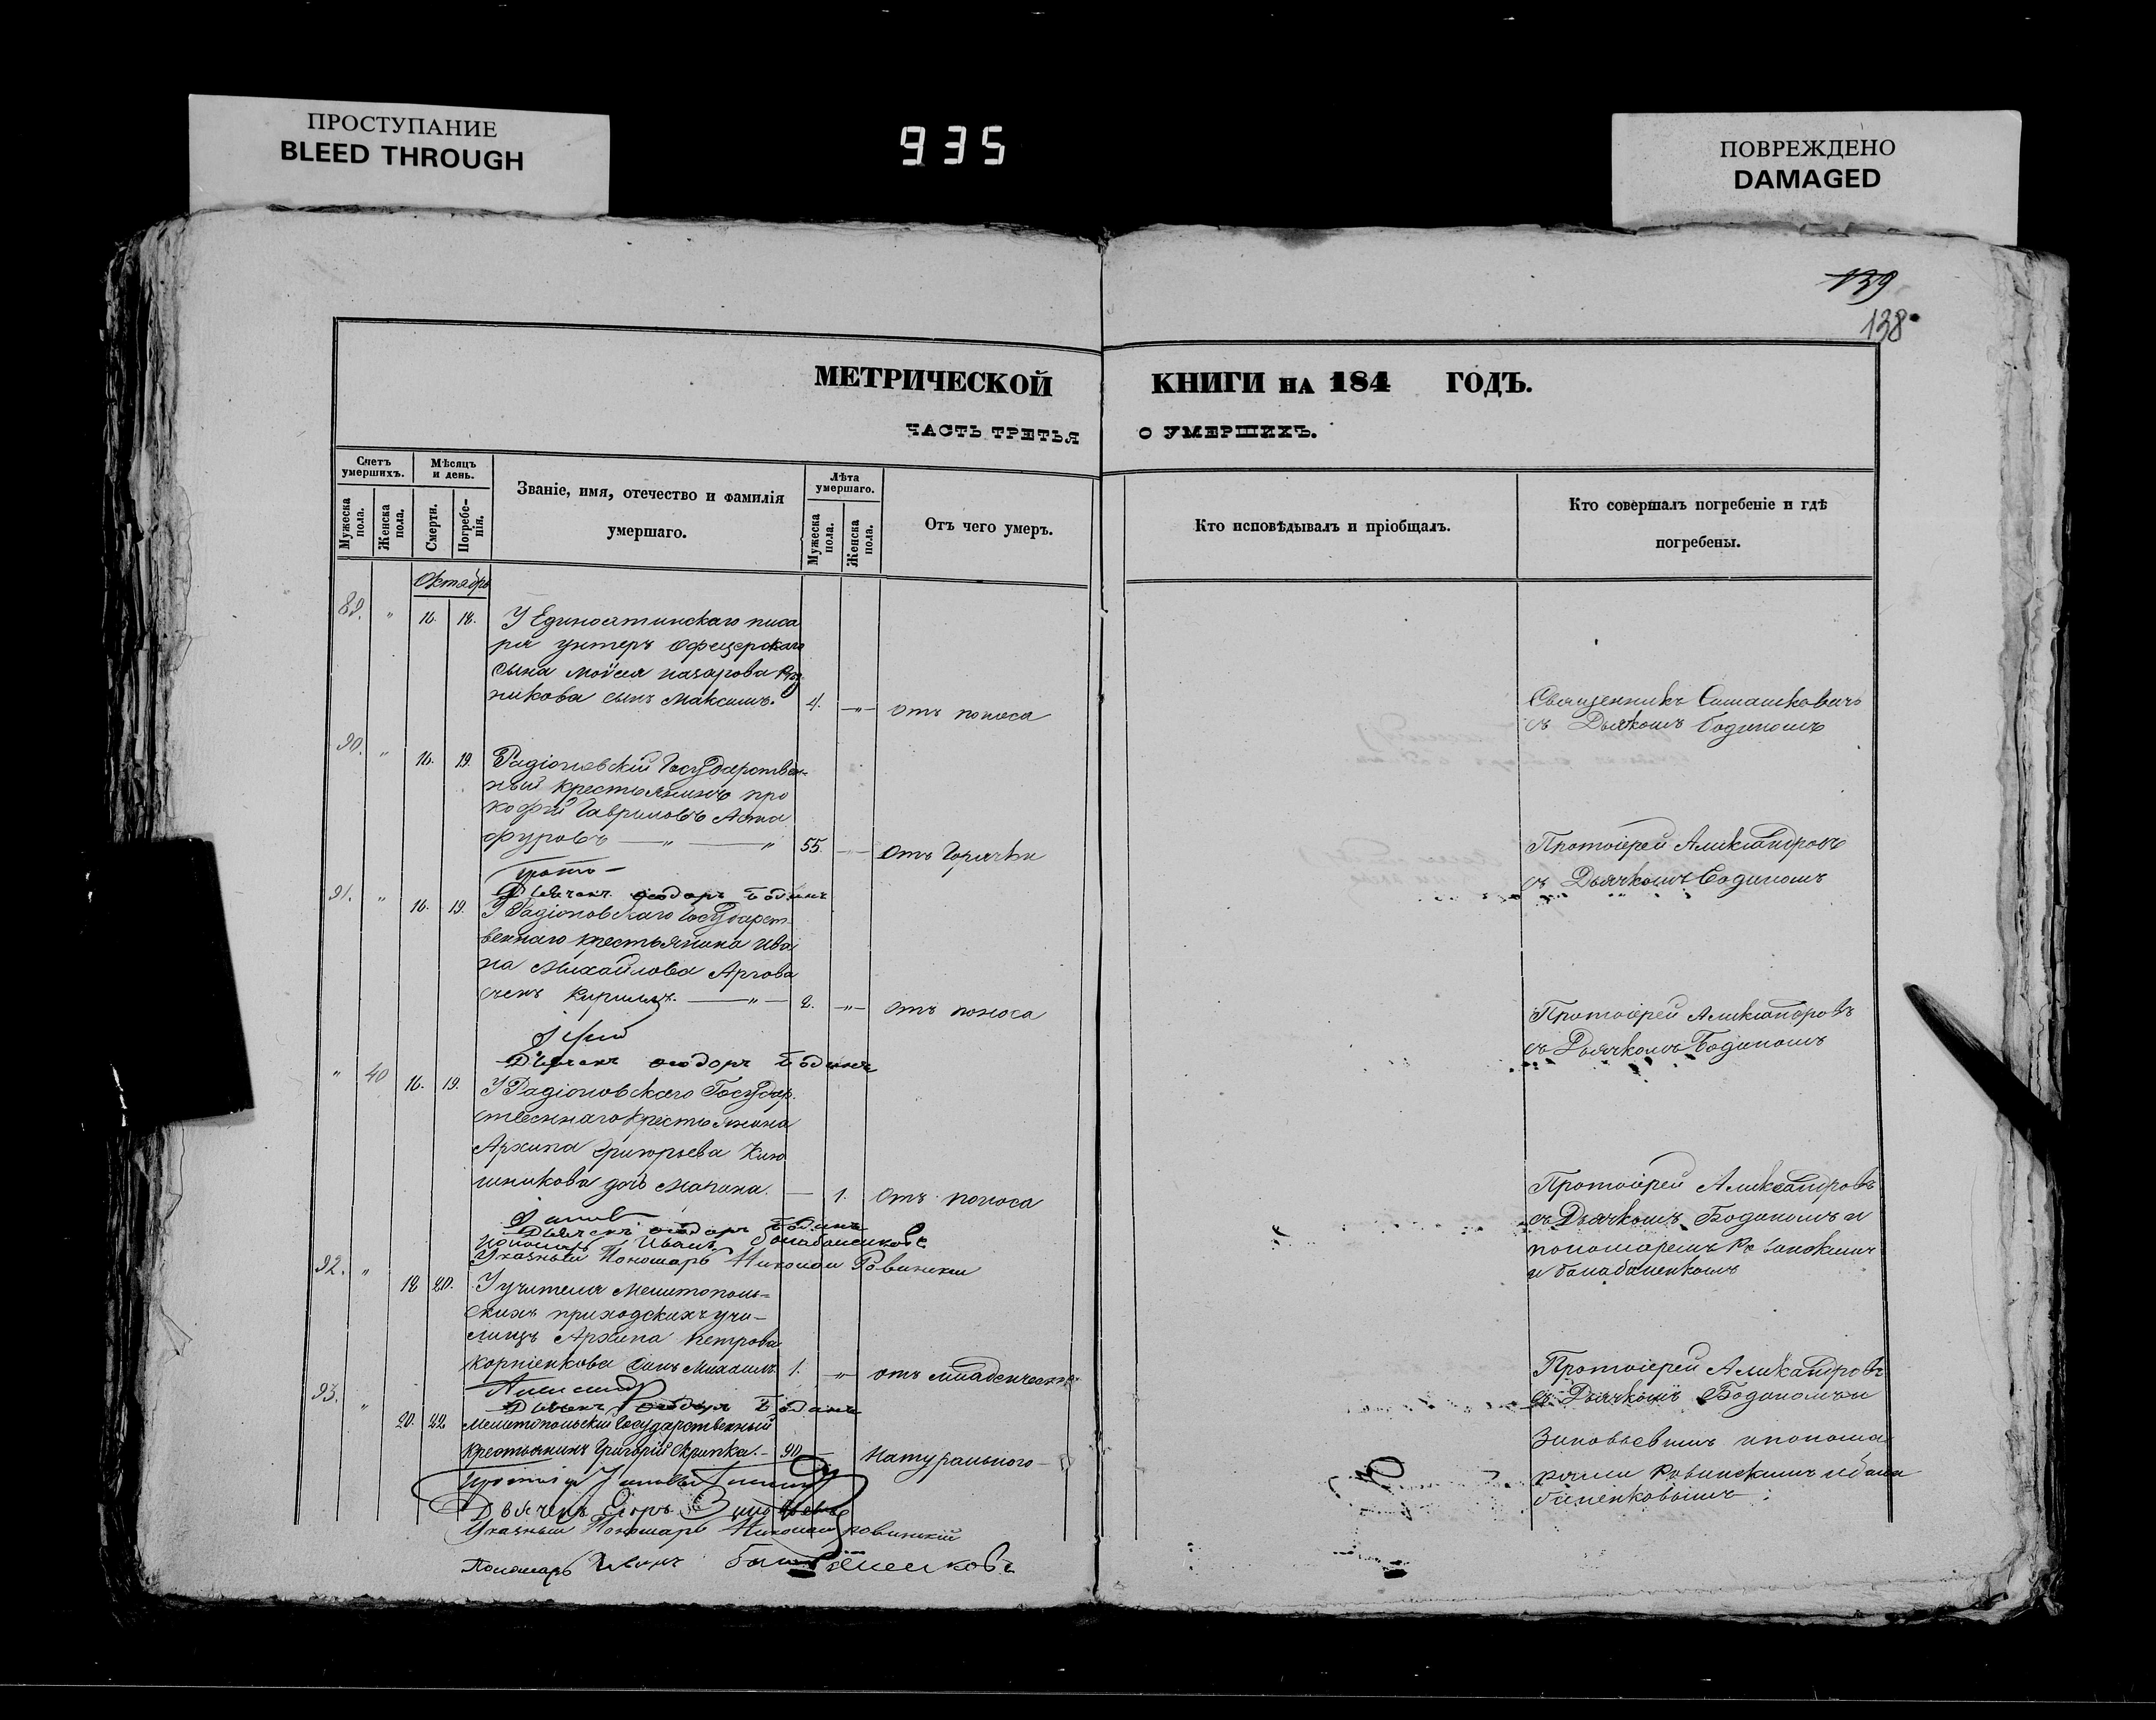 ПРОСТУПАНИЕ
BLEED THROUGH
935
ПОВРЕЖДЕНО
DAMAGED
139
138
МЕТРИЧЕСКОЙ КНИГИ НА 184 ГОДЪ.
ЧАСТЬ ТРЕТЬЯ О УМЕРШИХЪ.
Счетъ умершихъ.
Мужеска пола.
Женска пола.
Мѣсяцъ и день.
Смерти.
Погребенія.
Званіе, имя, отечество и фамилія
умершаго.
Лѣта умершаго.
Мужеска пола.
Женска пола.
Отъ чего умеръ.
Кто исповѣдывалъ и пріобщалъ.
Кто совершалъ погребеніе и гдѣ
погребены.
Октябрь
89. " 16. 18. У писа
ря унтеръ офецерскаго
сына Моѵсея Назарова
никова сынъ Максимъ. 4. —"— отъ поноса
Священникъ Симашковичь
съ Дьякомъ Бодиномъ
90. " 16. 19. Радіоновскій Государствен-
ный крестьянинъ Про
кофій Гавриловъ Аста
фуровъ —"— " 55. —"— отъ Горячки
Протоіерей Александровъ
съ Дьячкомъ Бодиномъ
Дьячекъ Ѳеодоръ Бодинъ
91. " 16. 19. У Радіоновскаго Государст
веннаго крестьянина Ива
на Михайлова Аргова
сынъ Кирилъ. —"— 2. —"— отъ поноса
Протоіерей Александровъ
съ Дьячкомъ Бодиномъ
Дьячекъ Ѳеодоръ Бодинъ
" 40 16. 19. У Радіоновскаго Государ
ственнаго крестьянина
Архипа Григорьева Клю
шникова дочь Марина. — 1. отъ поноса
Протоіерей Александровъ
съ Дьячкомъ Бодиномъ и
пономаремъ
и Балабаненкомъ
Дьячекъ Ѳеодоръ Бодинъ
Пономарь Иванъ Балабаненковъ
Указный Пономарь Николай Ровинскій
92. " 18 20. У учителя Мелитополь=
скихъ приходскихъ учи-
лищъ Архипа Петрова
Корніенкова сынъ Михаилъ. 1. —"— отъ младенческой
Протоіерей Александровъ
съ Дьячкомъ Бодиномъ и
Дьячекъ Ѳеодоръ Бодинъ
93. " 20. 22 Мелитопольскій Государственный
крестьянинъ Григорій Скрыпка. — 90 — Натуральной
Зиновьевымъ и понома
рями Ровинскимъ и Бала
баненковымъ.
Дьячекъ Зиновьевъ
Указный Пономарь Николай Ровинскій
Пономарь Иванъ Балабаненковъ